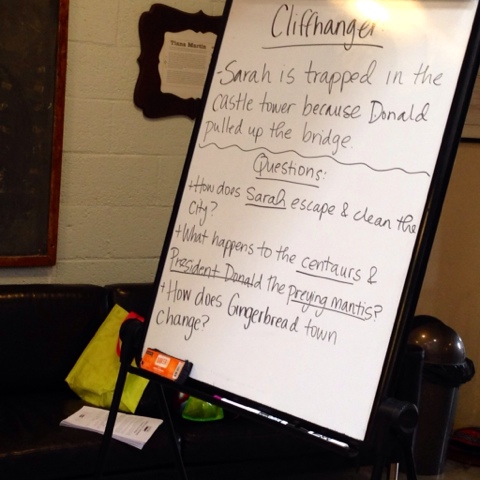 Tiana Martin
Cliffhanger
-Sarah is trapped in the
castle tower because Donald
pulled up the bridge.
Questions:
+How does Sarah escape & clean the
city?
+What happens to the centaurs &
President Donald the preying mantis?
+How does Gingerbread town
change?